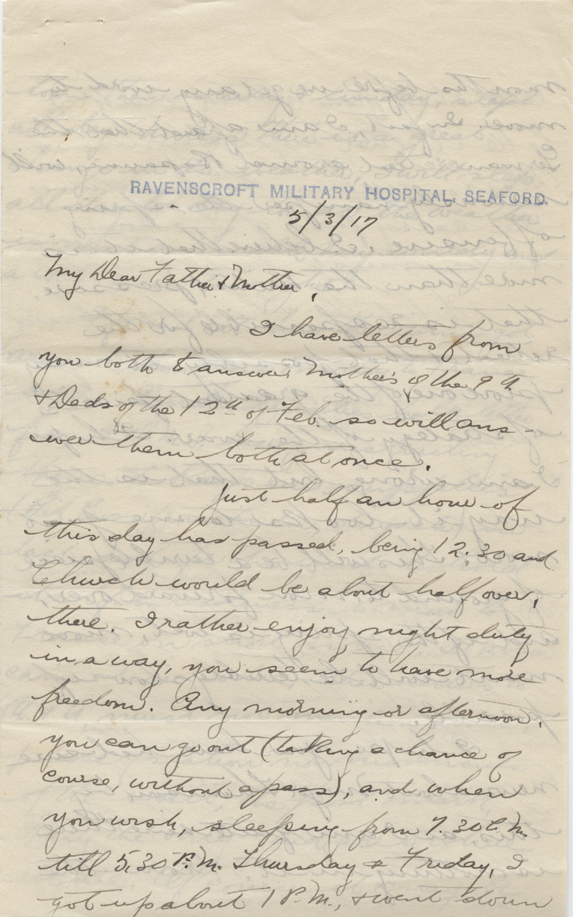 RAVENSCROFT MILITARY HOSPITAL, SEAFORD.
5/3/17
My Dear Father & Mother,
I have letters from
you both to answer Mother's of the 9th
& Dads of the 12th of Feb. so will ans-
wer them both at once.
Just half an hour of
this day has passed, being 12.30 and
Church would be about half over,
there. I rather enjoy night duty
in a way, you seem to have more
freedom. Any morning or afternoon,
you can go out (taking a chance of
course, without a pass), and when
you wish, sleeping from 9.30 A.M.
till 5.30 P.M. Thursday & Friday, I
got up about 1 P.M., & went down